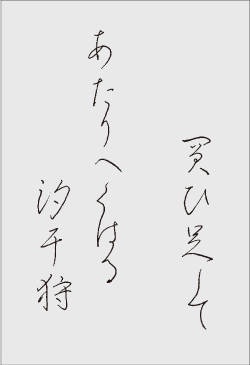 買ひ足して
あたりへくはる
汐干狩